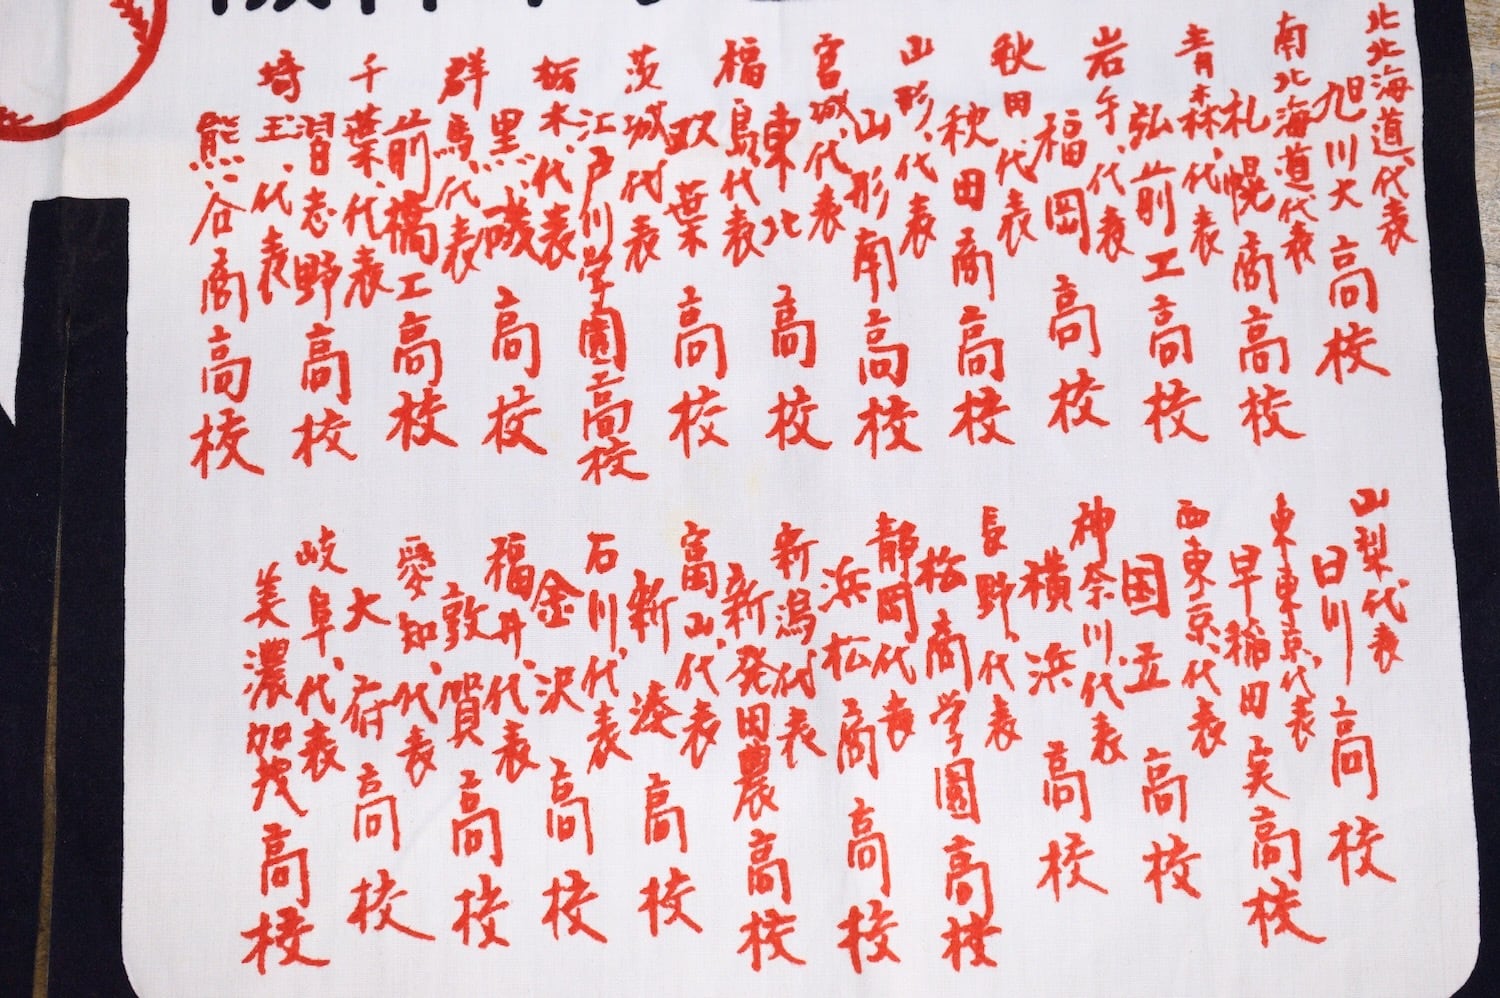 北北海道代表
旭川大高校
南北海道代表
札幌商高校
青森代表
弘前工高校
岩手代表
福岡高校
秋田代表
秋田商高校
山形代表
山形南高校
宮城代表
東北高校
福島代表
双葉高校
茨城代表
江戸川学園高校
栃木代表
黒磯高校
群馬代表
前橋工高校
千葉代表
習志野高校
埼玉代表
熊谷商高校
山梨代表
日川高校
東東京代表
早稲田実高校
西東京代表
国立高校
神奈川代表
横浜高校
長野代表
松商学園高校
静岡代表
浜松商高校
新潟代表
新発田農高校
富山代表
新湊高校
石川代表
金沢高校
福井代表
敦賀高校
愛知代表
大府高校
岐阜代表
美濃加茂高校